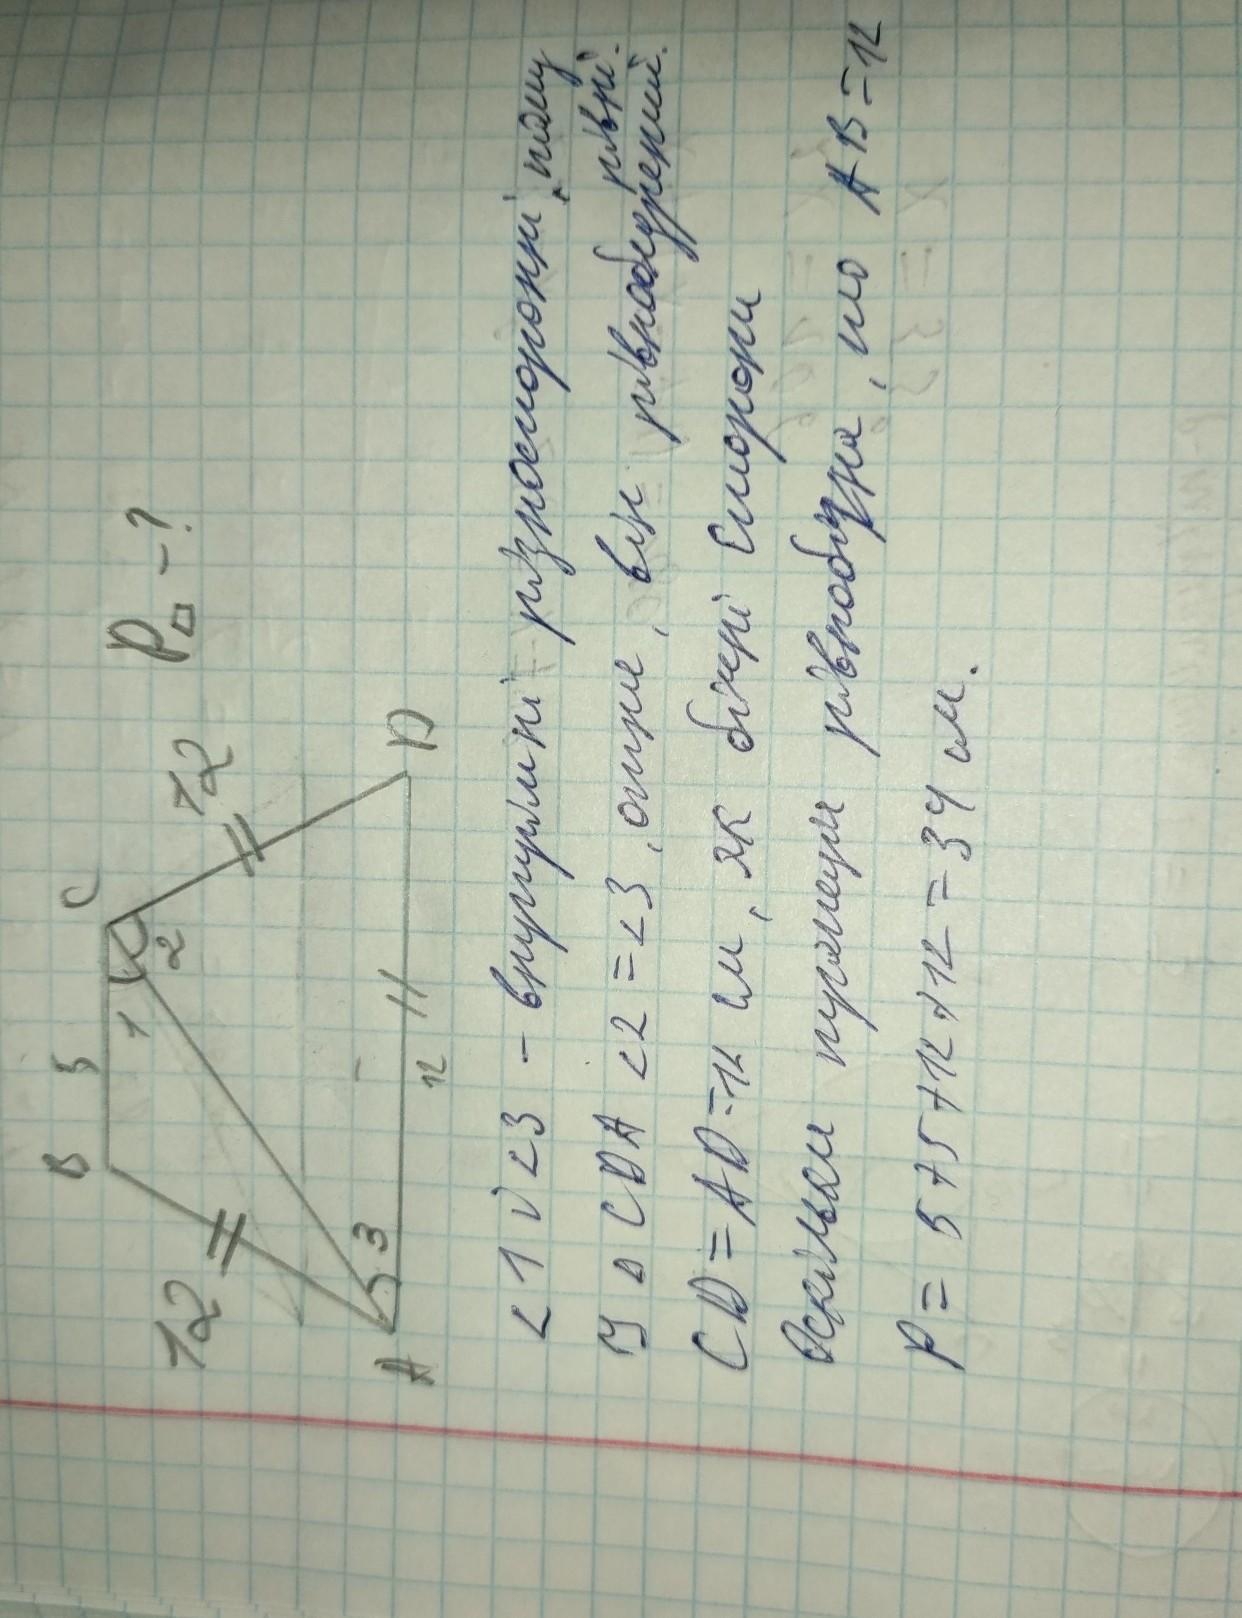 P□ - ?
B 5 C
12 1 2 12
3
A 12 D
∠1 і ∠3 - внутрішні різносторонні, тому рівні.
У Δ CDA ∠2 = ∠3, отже, він рівнобедрений.
CD = AD = 12 см, як бічні сторони
Оскільки трапеція рівнобічна, то AB = 12
P = 5 + 5 + 12 + 12 = 34 см.